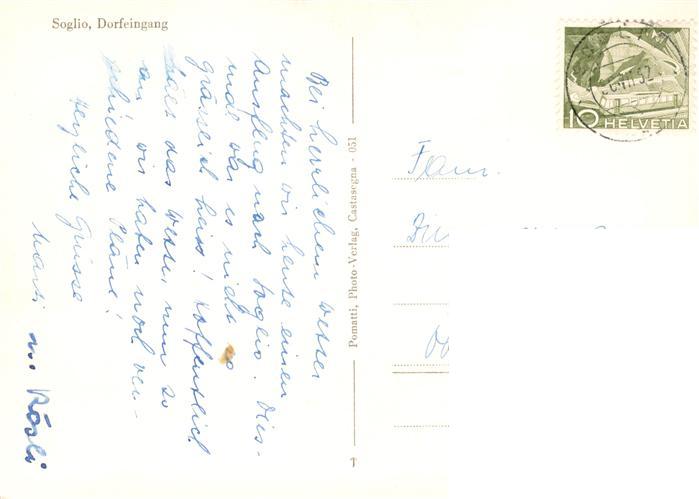 Soglio, Dorfeingang
Bei herrlichem Wetter
machten wir heute einen
Ausflug nach Soglio. Dies-
mal war es nicht so
grässlich heiss! Hoffentlich
hält das Wetter, nun so
an, wir haben noch ver-
schiedene Pläne!
Herzliche Grüsse
u. Rösli
Pomatti, Photo-Verlag, Castasegna - 051
10 HELVETIA
Fam.